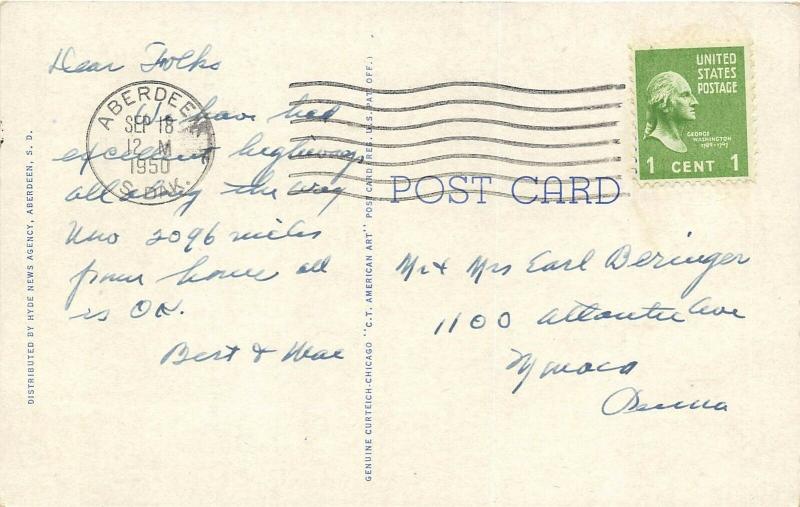 Dear Folks
We have had
excellent highways
all along the way
2096 miles
from home all
is OK.
Bert & Mae
ABERDEEN
SEP 18
12 M
1950
S. DAK.
UNITED
STATES
POSTAGE
GEORGE
WASHINGTON
1789-1797
1 CENT 1
POST CARD
Mr & Mrs Earl Beringer
1100 Atlantic Ave
Monaca
Penna
DISTRIBUTED BY HYDE NEWS AGENCY, ABERDEEN, S. D.
GENUINE CURTEICH-CHICAGO "C.T. AMERICAN ART" POST CARD (REG. U.S. PAT. OFF.)